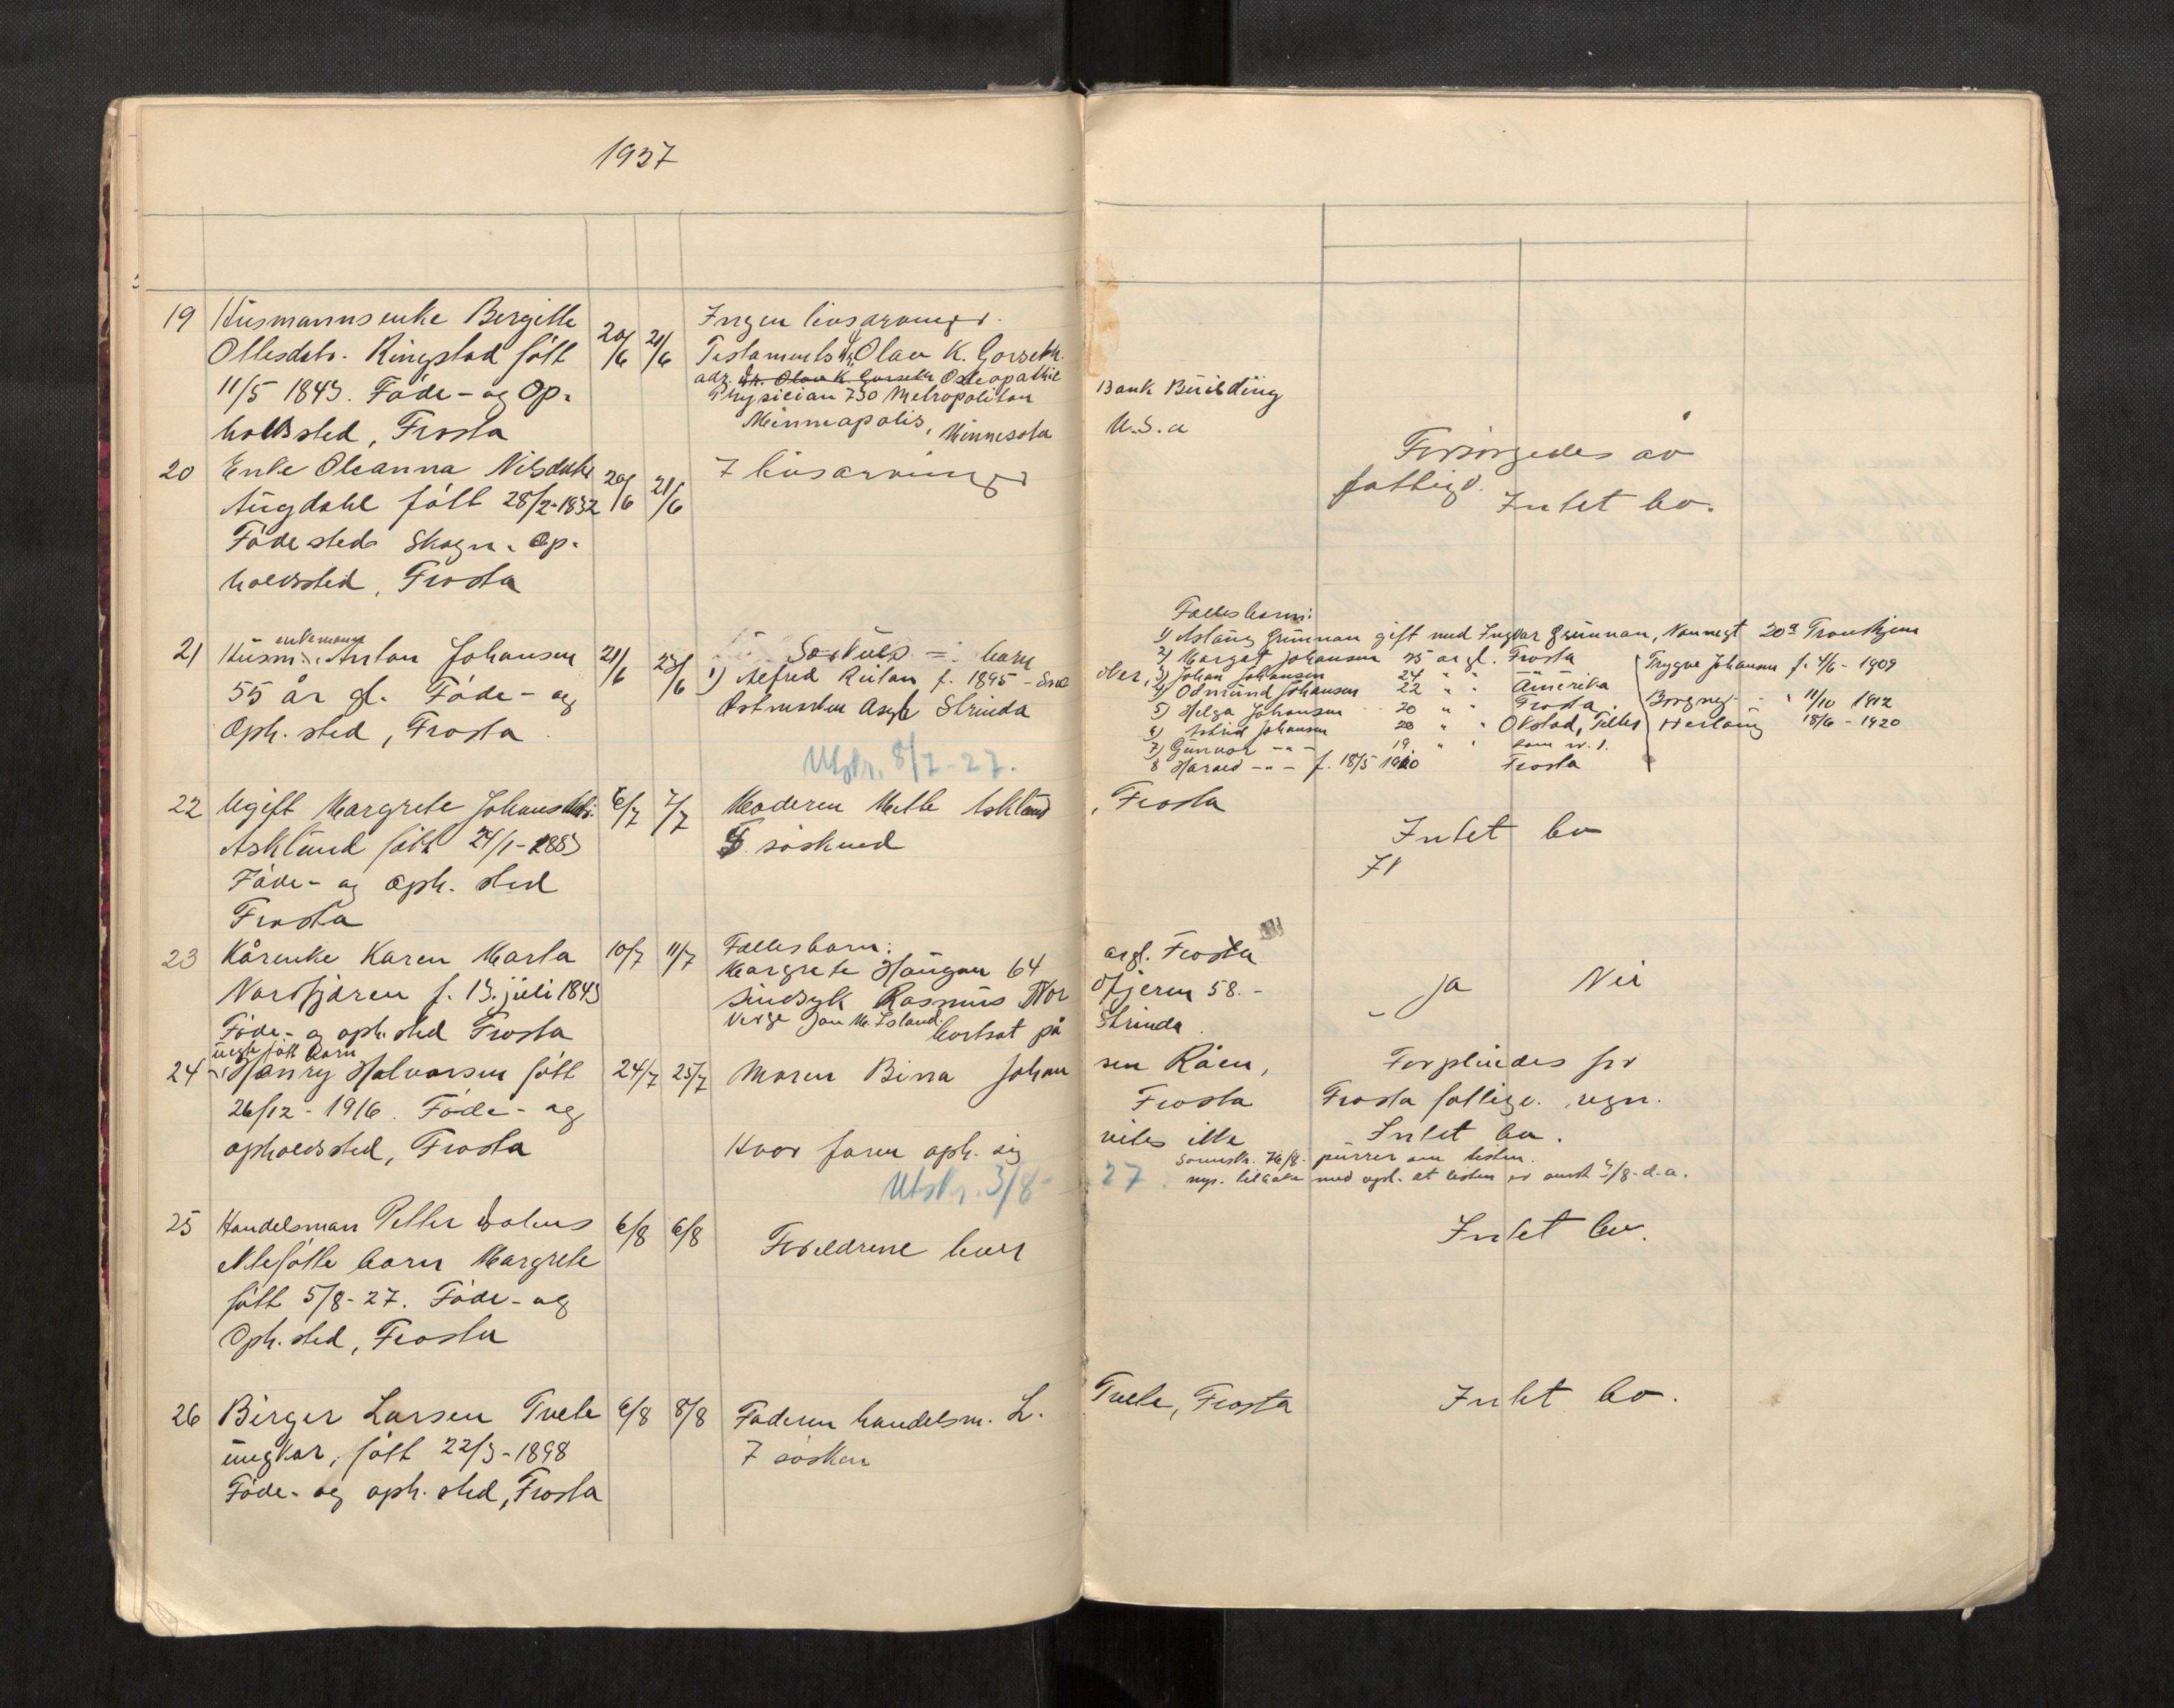 1937
19 Husmannsenke Bergitte 20/6 21/6 Ingen livsarvinger.
Ollesdatr. Ringstad født Testaments Olav K. Gorseth.
11/5 1843. Føde- og Op- adr. Dr. Olav K. Gorseth Osteopathic
Physician 730 Metropolitan Bank Building
holdssted, Frosta Minneapolis, Minnesota U.S.a
20 Enke Oleanna Nilsdatter 20/6 21/6 7 livsarvinger Forsørgedes av
Augdahl født 28/2-1832 fattigv. Intet bo.
Fødested Skogn. Op-
holdssted, Frosta
21 Husm. enkemann Anton Johansen 21/6 23/6 Særkuls barn
55 år gl. Føde- og 1) Alfred Reitan f. 1895 -
Oph. sted, Frosta Østmarken Asyl Strinda
Utskr. 8/7-27.
Fællesbarn:
1) Aslaug Grunnan gift med Ingvar Grunnan, Nonnegt 20a Trondhjem
2) Margot Johansen 25 år gl. Frosta
3) Johan Johansen 24 " " Amerika
4) Odmund Johansen 22 " " Frosta
5) Helga Johansen 20 " " Okstad, Tiller
6) Astrid Johansen 20
7) Gunvor -"- 19 " " som nr. 1.
8 Harald -"- f. 18/5 1910 Frosta
Trygve Johansen f. 4/6-1909
Borgny - " 11/10 1912
Herlaug 18/6-1920
22 Ugift Margrete Johansdatr. 6/7 7/7 Moderen Mette Askland, Frosta
Askland født 24/1-1883 5. søskend Intet bo
Føde- og oph. sted
Frosta
23 Kårenke Karen Marta 10/7 11/7 Fællesbarn:
Margrete Haugan 64 årgl. Frosta
Nordfjæren f. 13. juli 1843 Sindsyk Rasmus Nordfjeren 58.- Ja Nei
Føde- og oph. sted Frosta Verge Jon M. Island. bortsat på Strinda.
24 uegte født barn
Hanry Halvorsen født 24/7 25/7 Moren Birra Johansen Råen, Forpleiedes for
26/12-1916. Føde- og Frosta Frosta fattigv. regn.
opholdssted, Frosta Hvor faren oph. sig vites ikke Intet bo.
Utskr. 3/8-27.
Sorenskr. 26/8- purrer om listen.
med opl. at listen er sendt 4/8-d.a.
25 Handelsman Petter Dahls 6/8 6/8 Foreldrene lever Intet bo.
ektefødte barn Margrete
født 5/8-27. Føde- og
Oph. sted, Frosta
26 Birger Larsen Tvete 6/8 8/8 Faderen handelsm. L. Tvete, Frosta Intet bo.
ungkar, født 22/3-1898 7 søsken
Føde- og oph. sted, Frosta